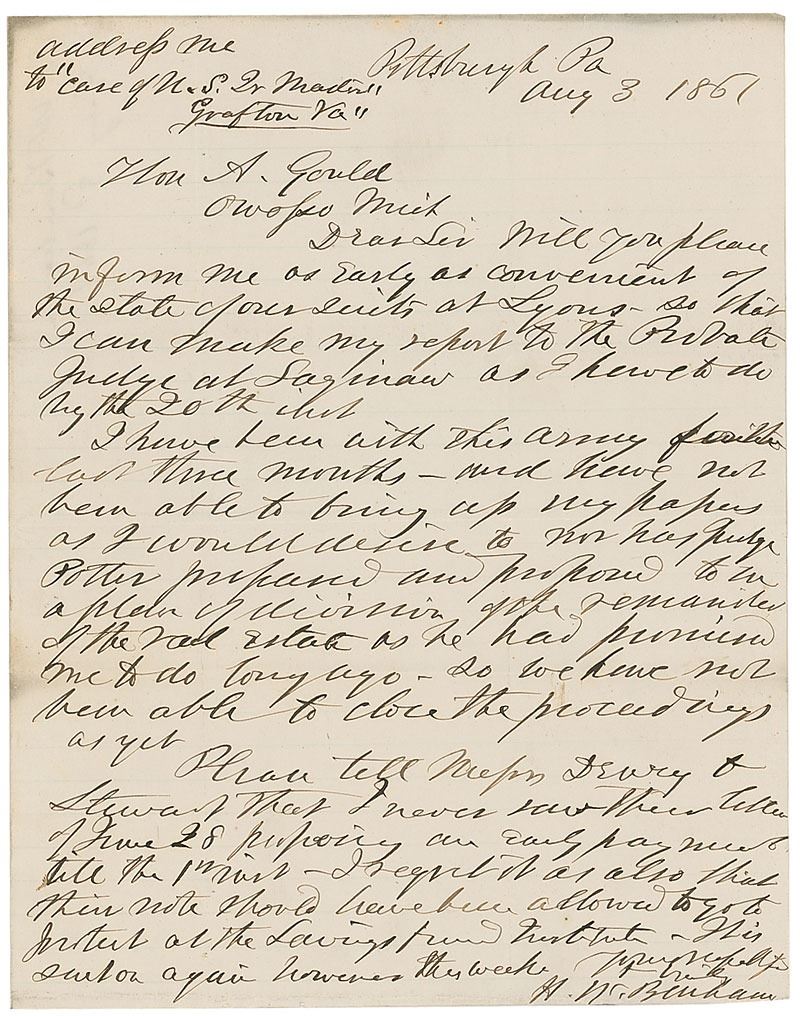 address me
to "care of U.S. Qr Master"
Grafton Va"
Pittsburgh Pa
Aug 3 1861
Hon A. Gould
Owosso Mich
Dear Sir Will you please
inform me as early as convenient of
the state of our suits at Lyons - so that
I can make my report to the Probate
Judge at Saginaw as I have to do
by the 20th inst
I have been with this army for the
last three months - and have not
been able to bring up my papers
as I would desire to nor has Judge
Potter prepared and proposed to me
a plan of division of the remainder
of the real estate as he had promised
me to do long ago - so we have not
been able to close the proceedings
as yet
Please tell Messrs Dewey &
Stewart that I never saw their letter
of June 28 proposing an early payment
till the 1st inst - I regret it as also that
their note should have been allowed to go to
protest at the Savings Fund Institute - It is
sent on again however this week
Yours respectfy
H. W. Benham